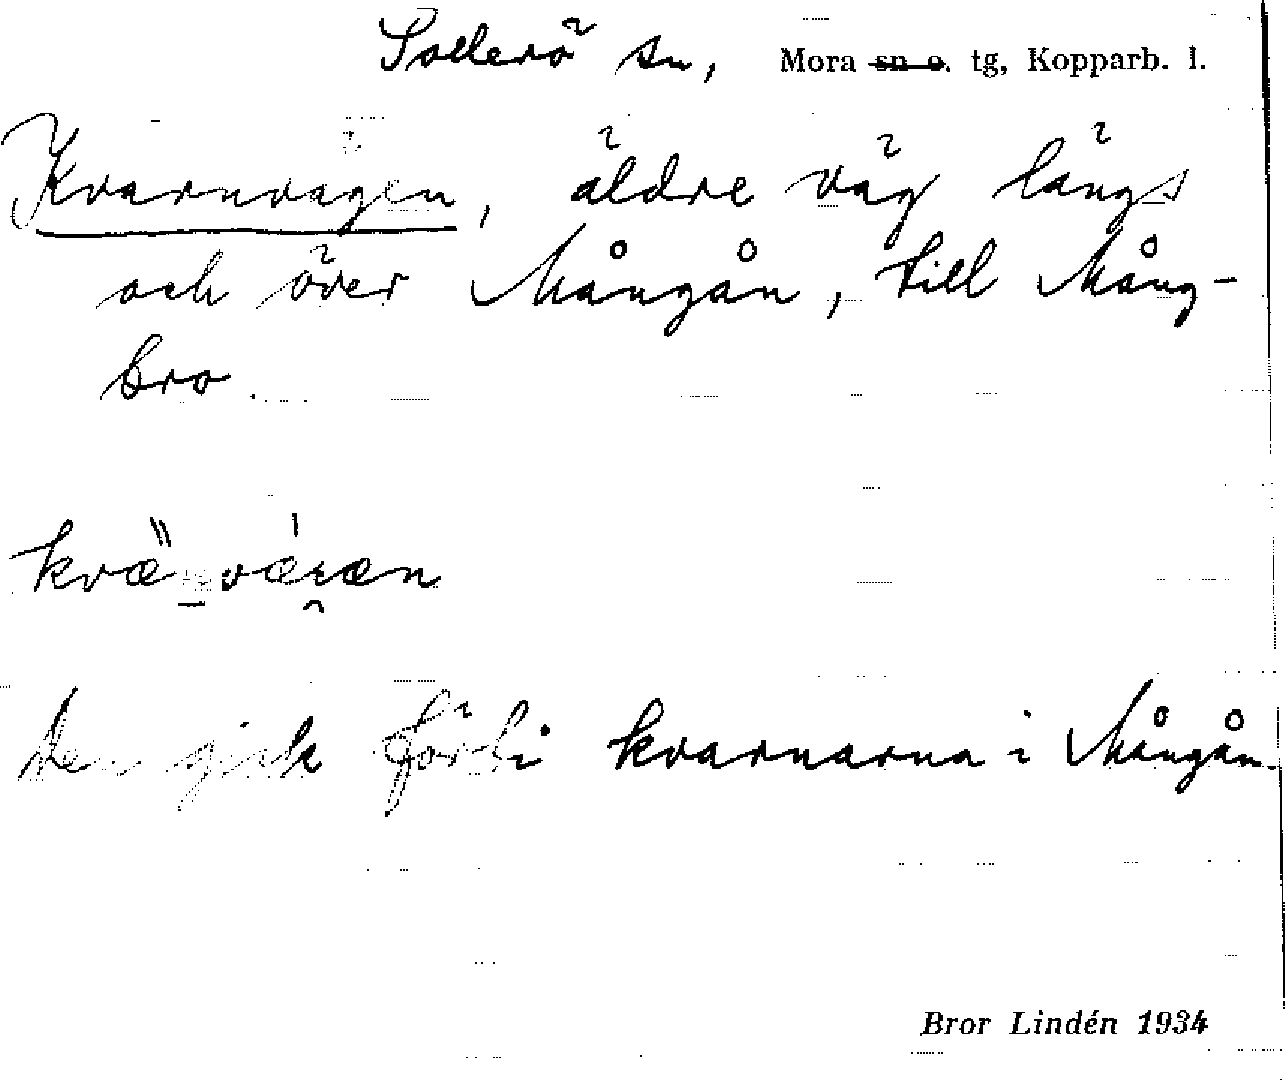 Sollerö sn, Mora sn o. tg, Kopparb. l.
Kvarnvägen, äldre väg längs
och över Mångån, till Mång-
bro.
den gick förbi kvarnarna i Mångån.
Bror Lindén 1934